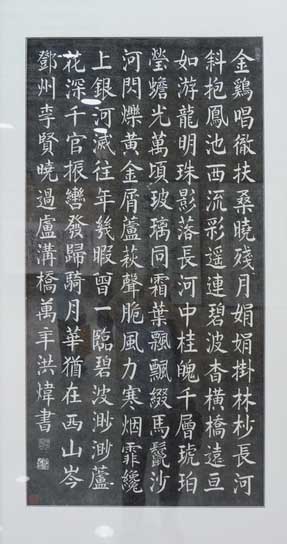 金鷄唱徹扶桑曉殘月娟娟掛林杪長河
斜抱鳳池西流彩遥連碧波杳橫橋遠亘
如游龍明珠影落長河中桂魄千層琥珀
瑩蟾光萬頃玻璃同霜葉飄飄綴馬鬣沙
河閃爍黃金屑蘆荻聲脆風力寒烟霏纔
上銀河滅往年幾暇曾一臨碧波渺渺蘆
花深千官振轡發歸騎月華猶在西山岑
鄧州李賢曉過盧溝橋萬年洪煒書